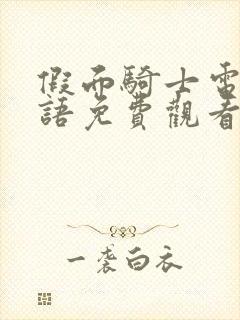 假面騎士電
語免費觀看
一襲白衣